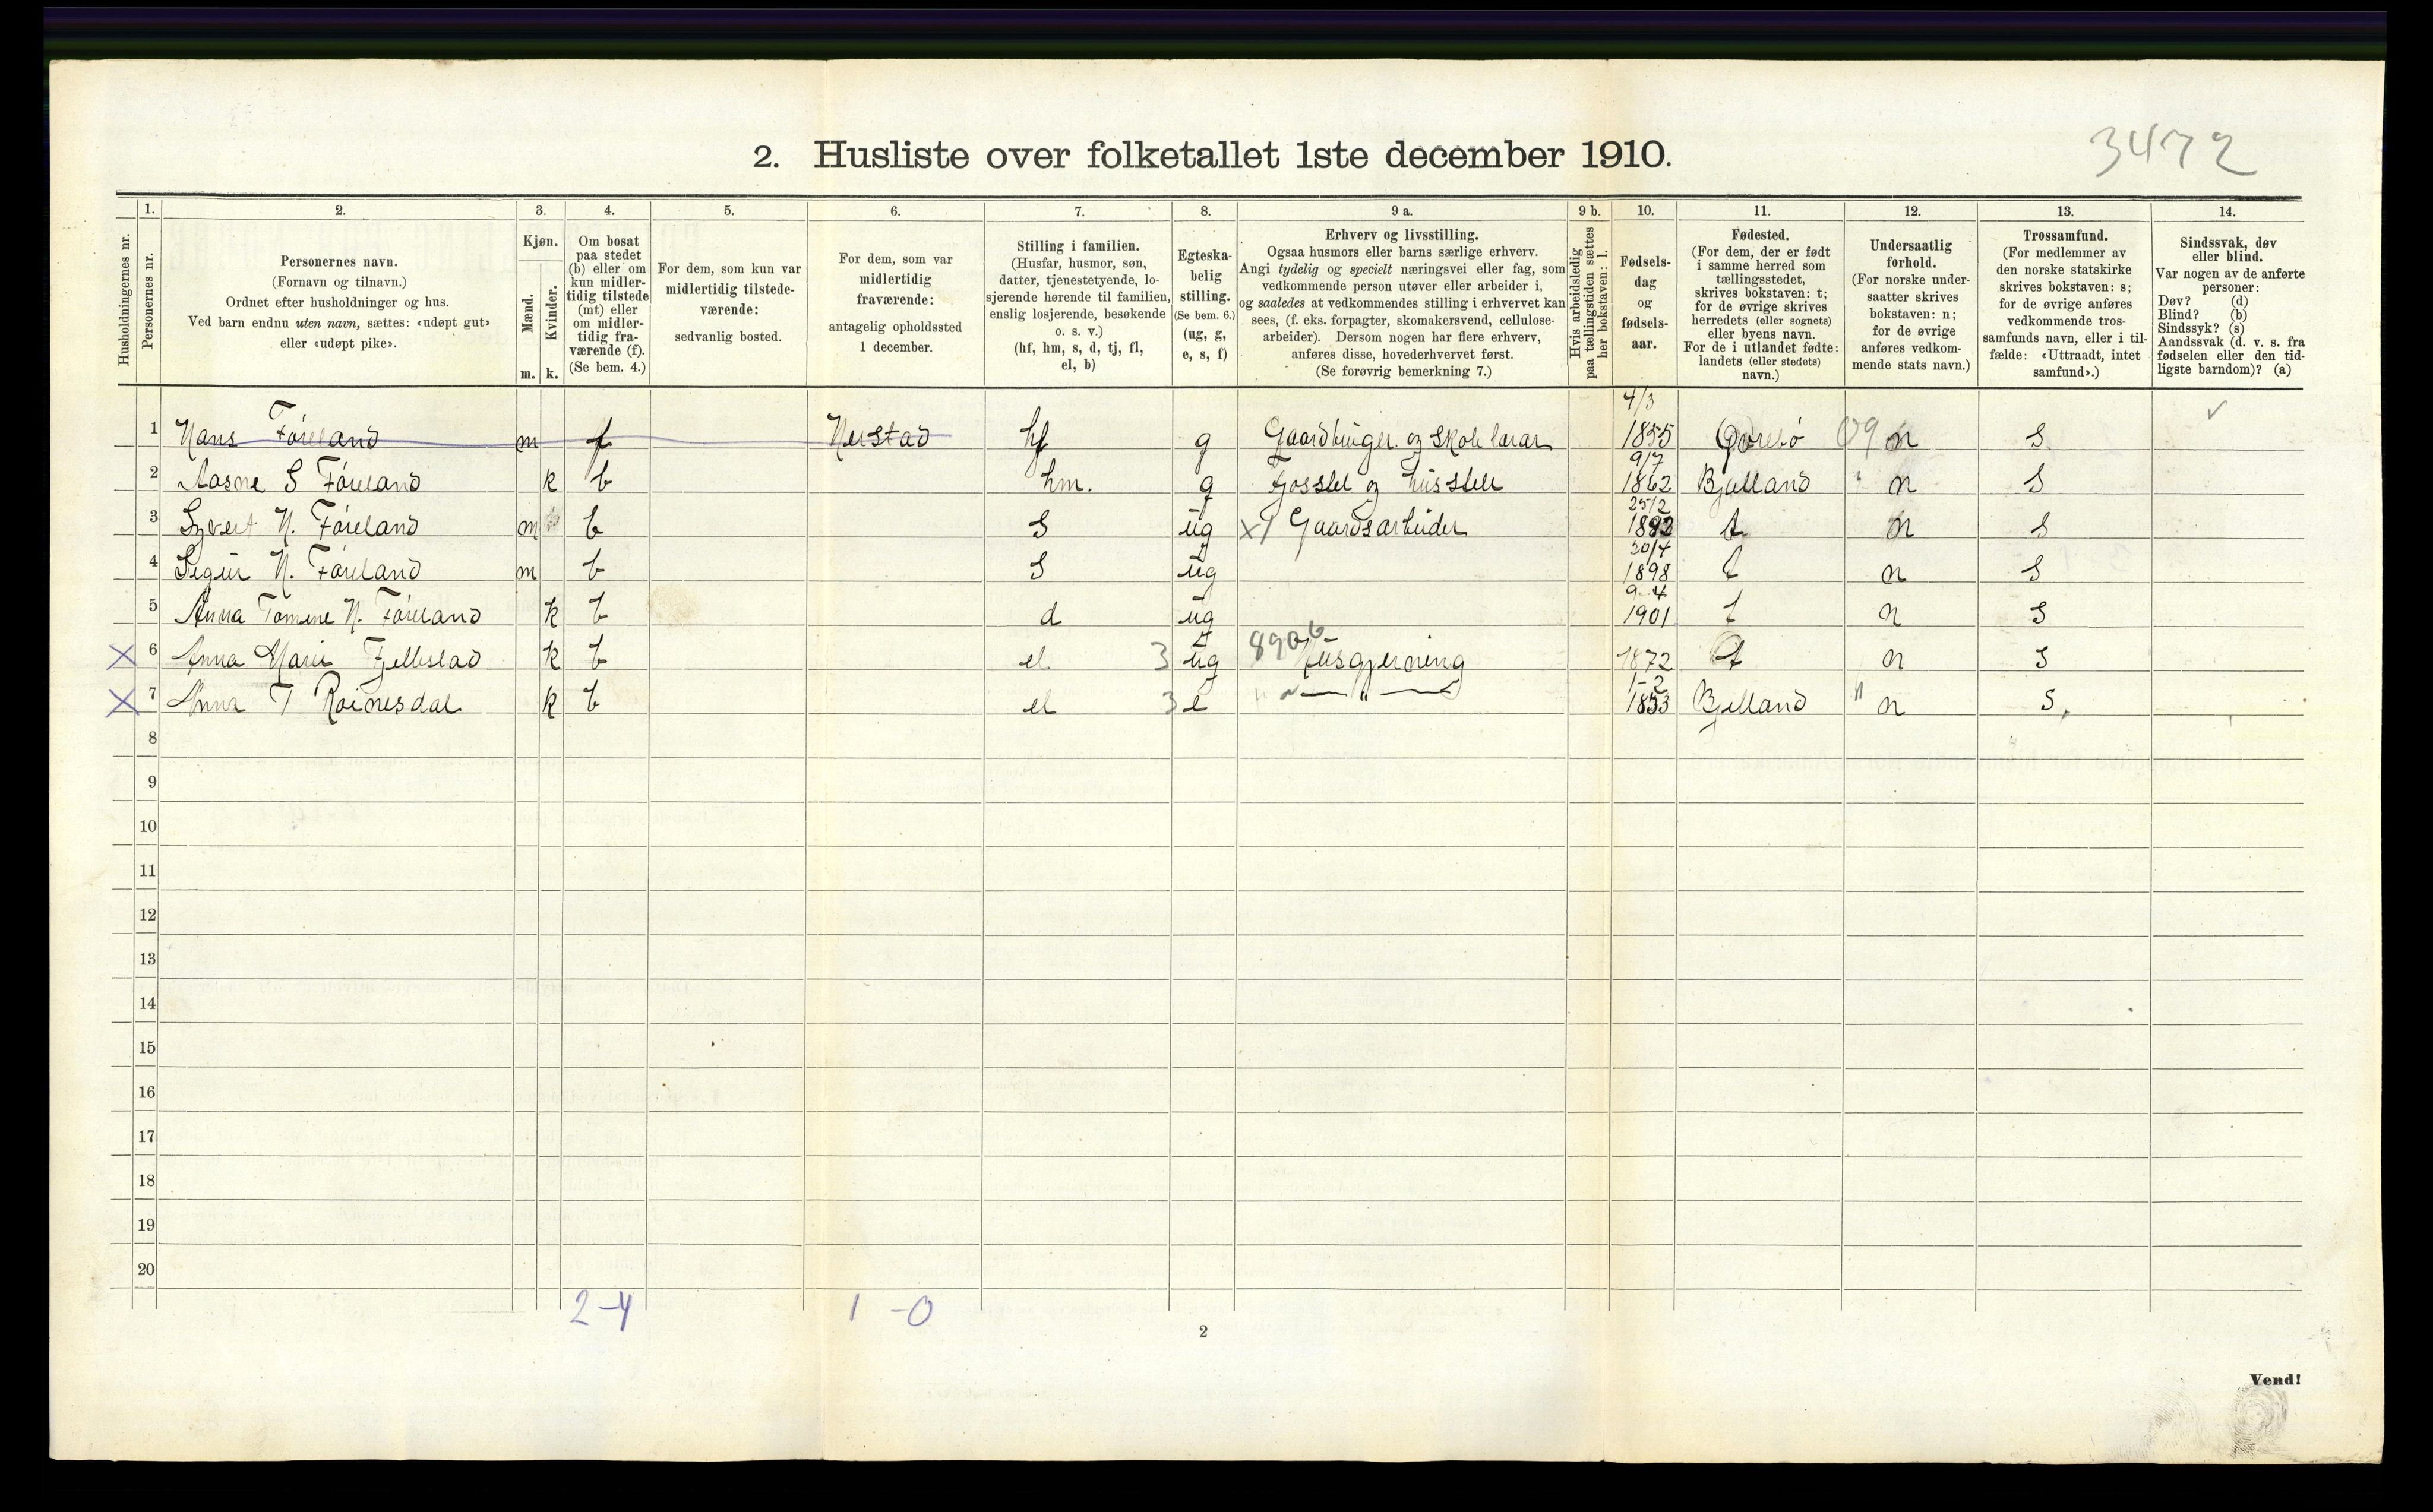 3472
2. Husliste over folketallet 1ste december 1910.
Husholdningernes nr.
1. Personernes nr.
2. Personernes navn.
(Fornavn og tilnavn.)
Ordnet efter husholdninger og hus.
Ved barn endnu uten navn, sættes: «udøpt gut»
eller «udøpt pike».
3. Kjøn.
Mænd. m.
Kvinder. k.
4. Om bosat
paa stedet
(b) eller om
kun midler-
tidig tilstede
(mt) eller
om midler-
tidig fra-
værende (f).
(Se bem. 4.)
5. For dem, som kun var
midlertidig tilstede-
værende:
sedvanlig bosted.
6. For dem, som var
midlertidig
fraværende:
antagelig opholdssted
1 december.
7. Stilling i familien.
(Husfar, husmor, søn,
datter, tjenestetyende, lo-
sjerende hørende til familien,
enslig losjerende, besøkende
o. s. v.)
(hf, hm, s, d, tj, fl,
el, b)
8. Egteska-
belig
stilling.
(Se bem. 6.)
(ug, g,
e, s, f)
9 a. Erhverv og livsstilling.
Ogsaa husmors eller barns særlige erhverv.
Angi tydelig og specielt næringsvei eller fag, som
vedkommende person utøver eller arbeider i,
og saaledes at vedkommendes stilling i erhvervet kan
sees, (f. eks. forpagter, skomakersvend, cellulose-
arbeider). Dersom nogen har flere erhverv,
anføres disse, hovederhvervet først.
(Se forøvrig bemerkning 7.)
9 b. Hvis arbeidsledig
paa tællingstiden sættes
her bokstaven: l.
10. Fødsels-
dag
og
fødsels-
aar.
11. Fødested.
(For dem, der er født
i samme herred som
tællingsstedet,
skrives bokstaven: t;
for de øvrige skrives
herredets (eller sognets)
eller byens navn.
For de i utlandet fødte:
landets (eller stedets)
navn.)
12. Undersaatlig
forhold.
(For norske under-
saatter skrives
bokstaven: n;
for de øvrige
anføres vedkom-
mende stats navn.)
13. Trossamfund.
(For medlemmer av
den norske statskirke
skrives bokstaven: s;
for de øvrige anføres
vedkommende tros-
samfunds navn, eller i til-
fælde: «Uttraadt, intet
samfund».)
14. Sindssvak, døv
eller blind.
Var nogen av de anførte
personer:
Døv? (d)
Blind? (b)
Sindssyk? (s)
Aandssvak (d. v. s. fra
fødselen eller den tid-
ligste barndom)? (a)
1 Hans Föreland m f Nerstad hf g Gaardbruger og skolelærar 4/3 1855 Øvrebö 09 n S ✓
2 Aasne S Föreland k b hm. g Fjosstel og husstell 9/7 1862 Bjelland " n S
3 Syvert N. Föreland m b S ug X1 Gaardsarbeider 25/2 t n S
4 N. Föreland m b S ug 20/4 1898 t n S
5 Anna Tomine N. Föreland k b d ug 9-4 1901 t n S
X 6 Anna Marie Fjellestad k b el 3 ug Husgjerning 1872 t n S
X 7 Anna T Roinesdal k b el 3 e — " — 1-2 1853 Bjelland " n S.
8
9
10
11
12
13
14
15
16
17
18
19
20
2-4 1-0
2
Vend!